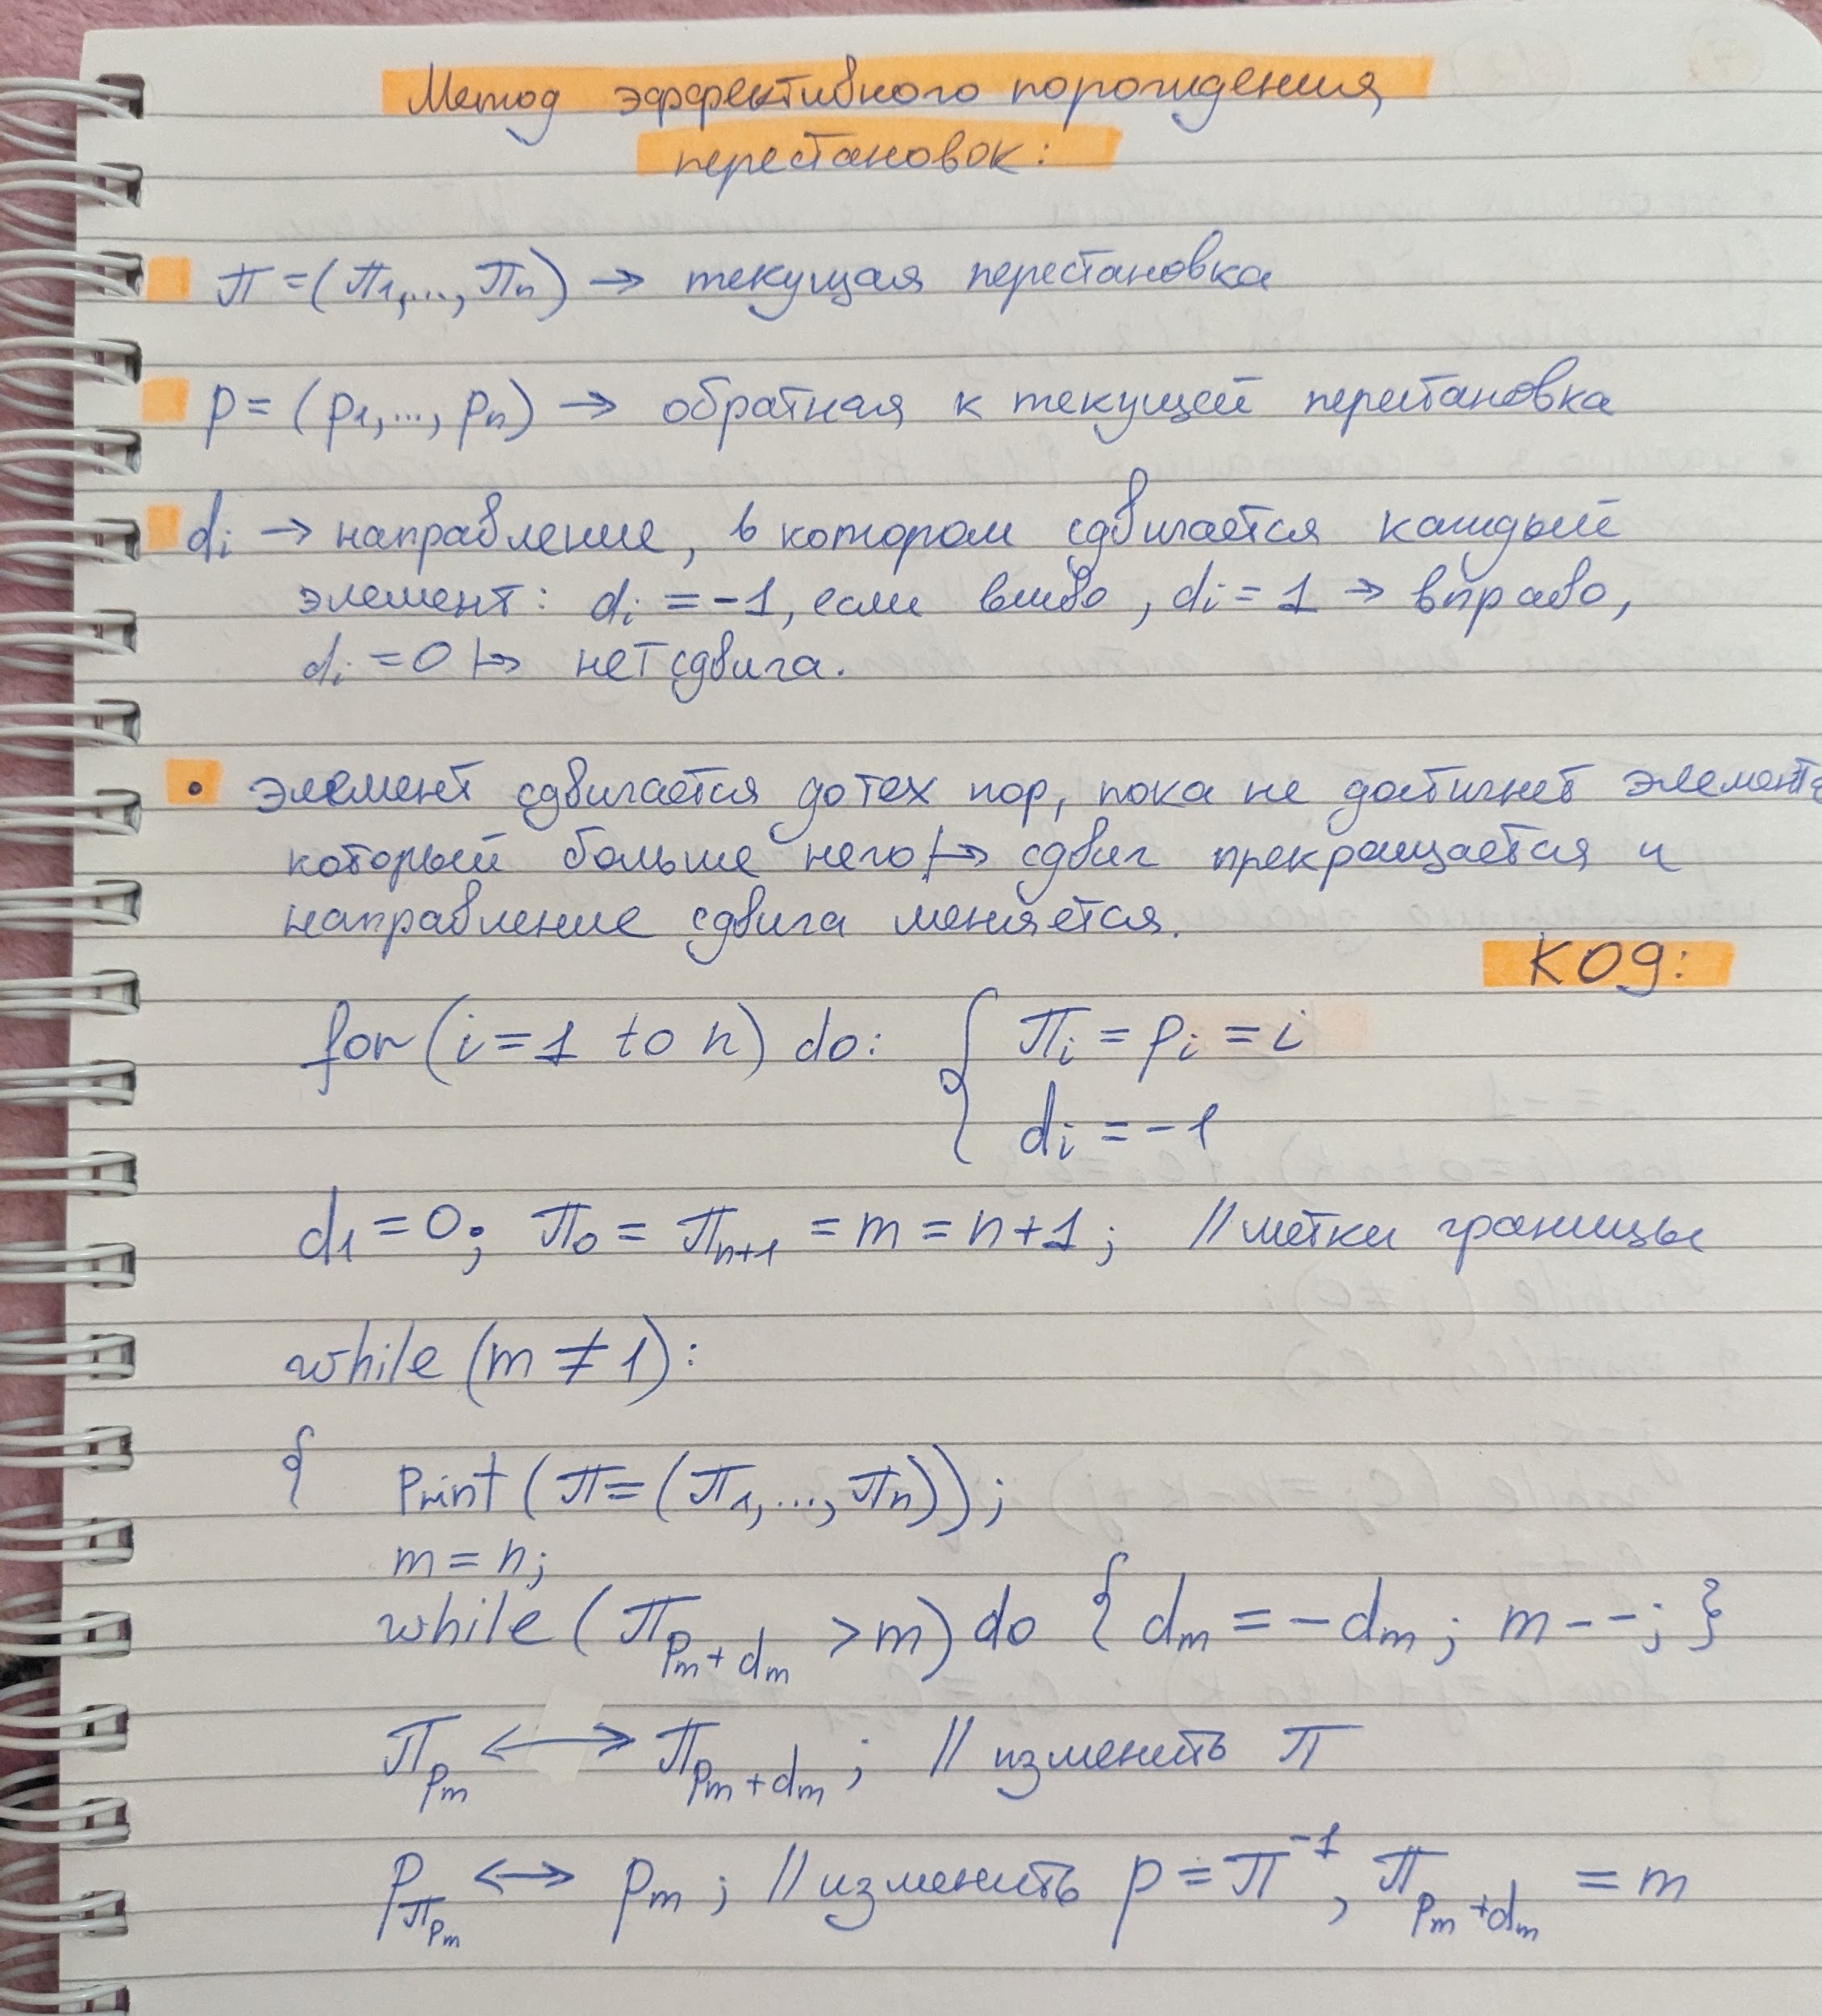 Метод эффективного порождения
перестановок:
π = (π₁,..., πₙ) → текущая перестановка
p = (p₁,..., pₙ) → обратная к текущей перестановка
dᵢ → направление, в котором сдвигается каждый
элемент: dᵢ = -1, если влево, dᵢ = 1 → вправо,
dᵢ = 0 ↦ нет сдвига.
• элемент сдвигается до тех пор, пока не достигнет элемента
который больше него ↦ сдвиг прекращается и
направление сдвига меняется.
КОД:
for (i = 1 to n) do: { πᵢ = pᵢ = i
dᵢ = -1
d₁ = 0; π₀ = πₙ₊₁ = m = n+1; // метки границы
while (m ≠ 1):
{ Print (π = (π₁,..., πₙ));
m = n;
while (π_{pₘ+dₘ} > m) do { dₘ = -dₘ; m--; }
π_{pₘ} ↔ π_{pₘ+dₘ}; // изменить π
p_{π_{pₘ}} ↔ pₘ; // изменить p = π⁻¹, π_{pₘ+dₘ} = m